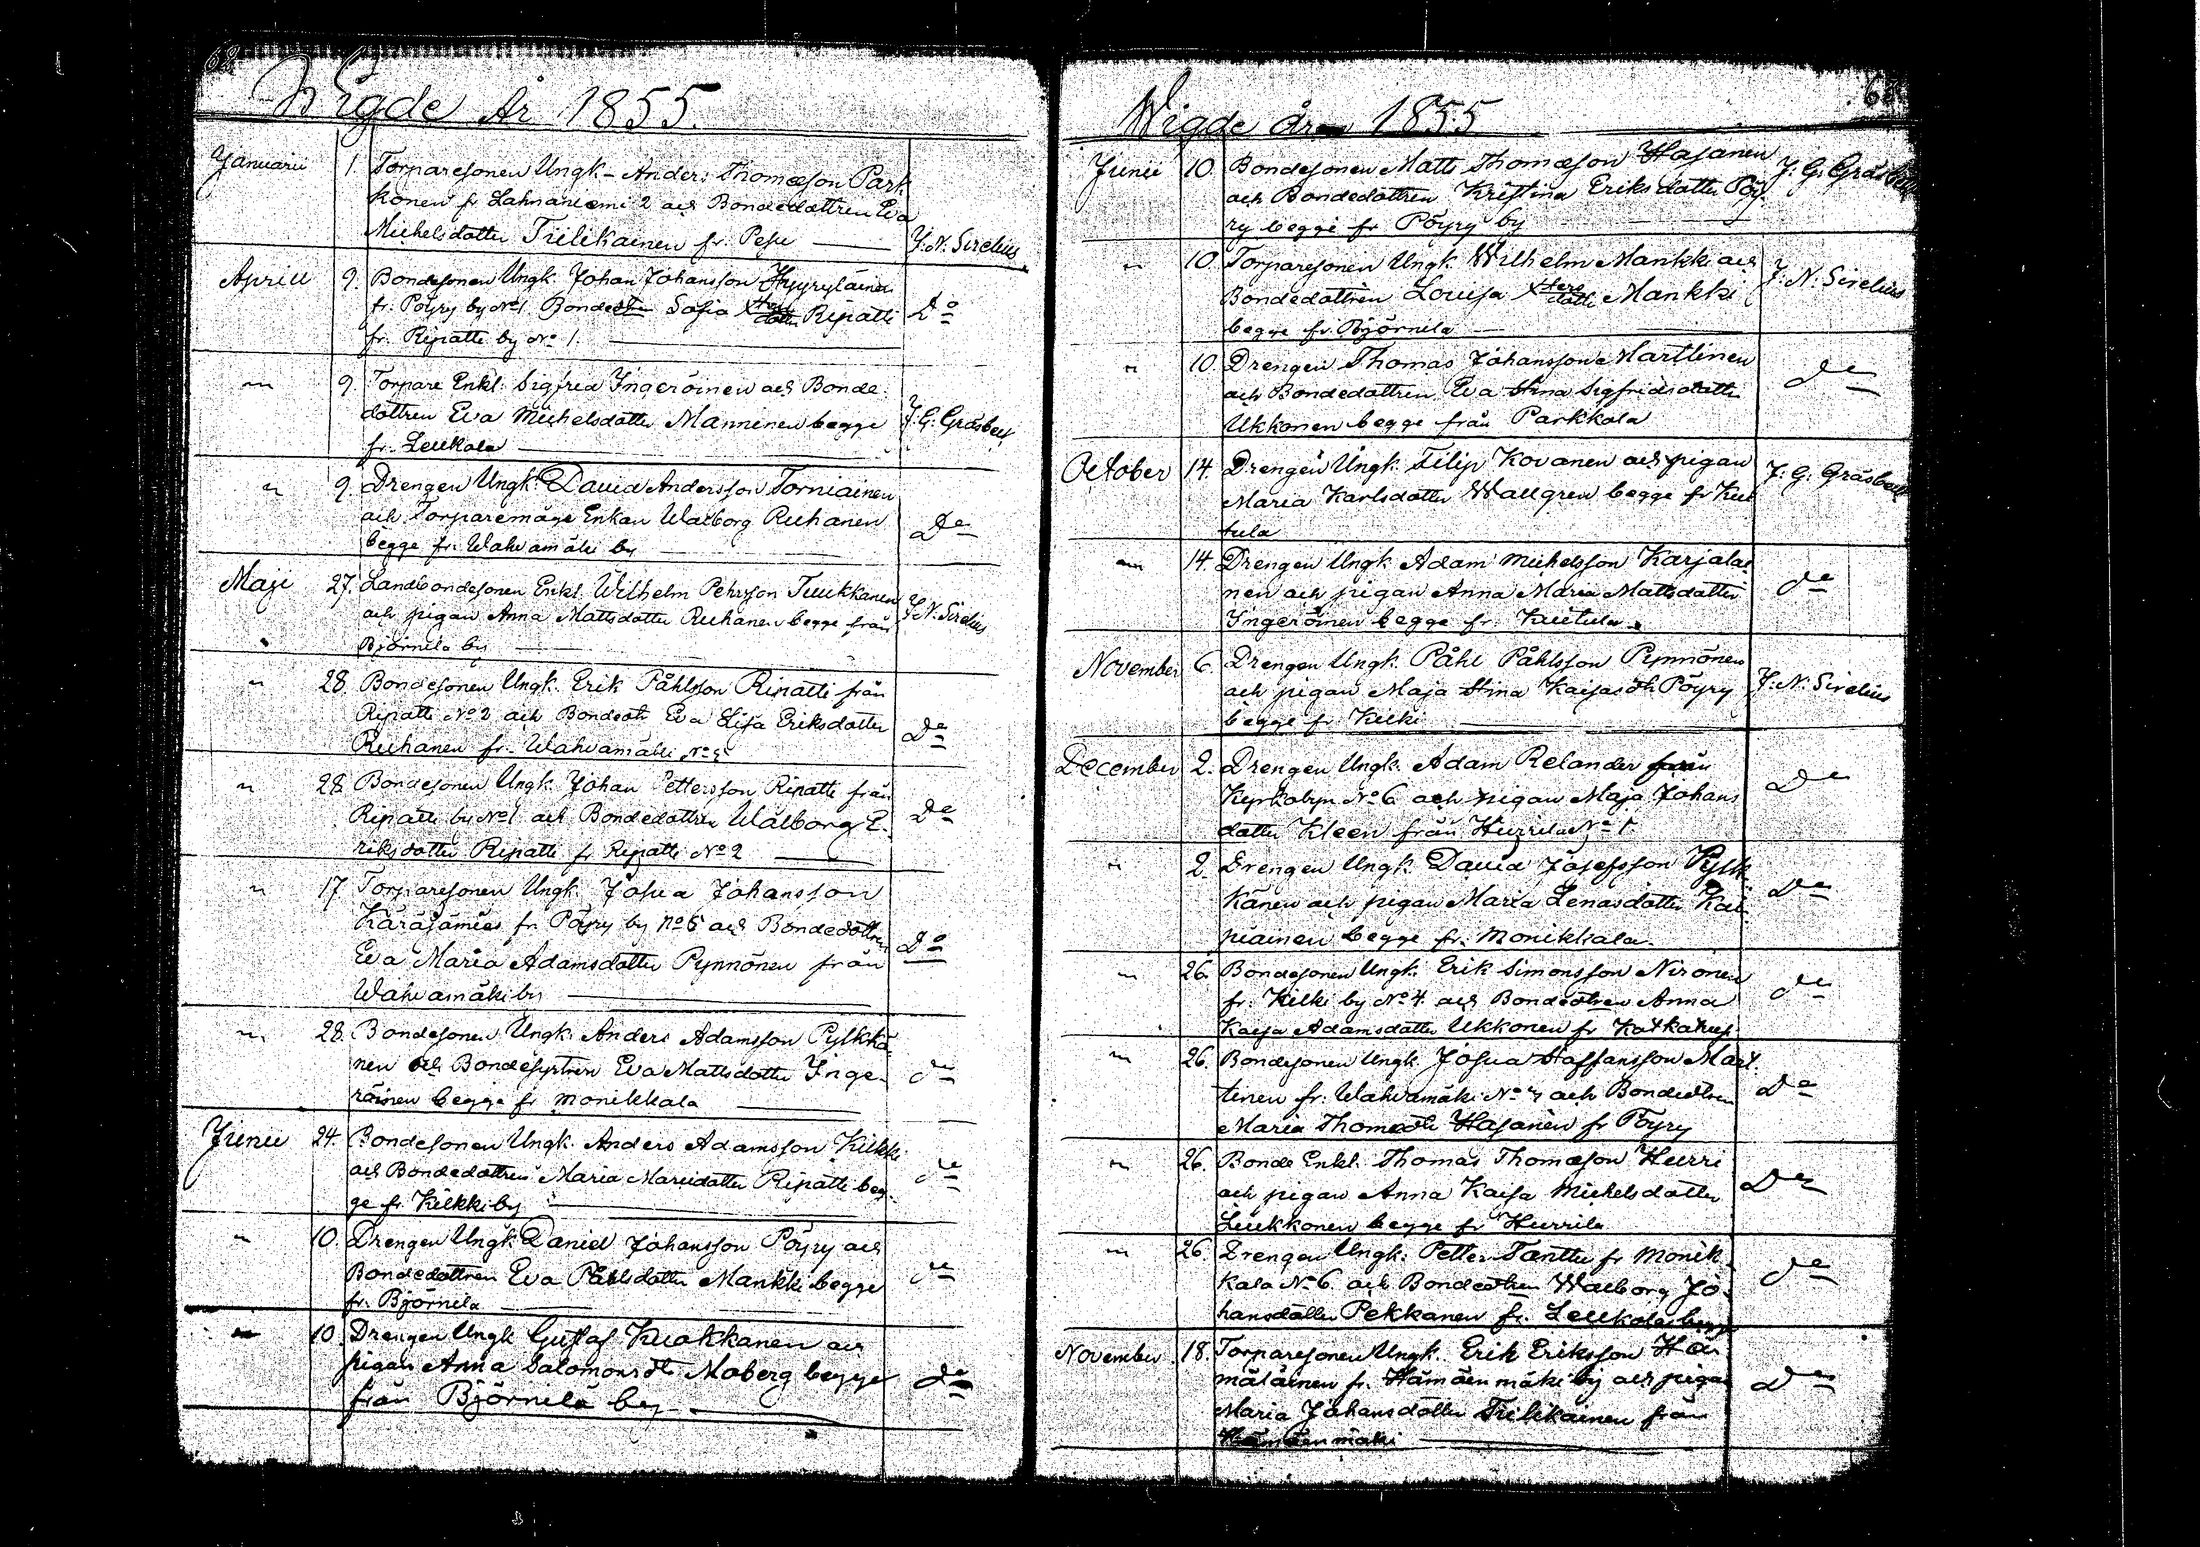 62
Wigde År 1855.
Januarii 1. Torparesonen Ungk. Anders Thomæson Park
konen fr Lahnaniemi 2 och Bondedottren Eva
Michelsdotter Tielikainen fr. Pesu J. N. Sirelius
Aprill 9. Bondesonen Ungk. Johan Johansson Hyyryläinen
fr. Pöyry by No 1 Sofia Xters dotter Ripatti Do
fr. Ripatti by No 1.
" 9. Torpare Enkl. Sigfred Ingeröinen och Bonde
dottren Eva Michelsdotter Manninen begge J. G. Gråsbeck
fr. Leukola
" 9. Drengen Ungk. David Andersson Torniainen
och Torparemåge Enkan Walborg Ruhanen Do
begge fr. Wahvamäki by
Maji 27. Landbondesonen Enkl. Wilhelm Pehrson Tuukkanen
och pigan Anna Mattsdotter Ruhanen begge från J. N. Sirelius
Björnila by
" 28. Bondesonen Ungk. Erik Påhlsson Ripatti från
Ripatti No 2 och Bondedtr Eva Lisa Eriksdotter Do
Ruhanen fr. Wahvamäki No
" 28 Bondesonen Ungk. Johan Pettersson Ripatti från
Ripatti by No 1 och Bondedottren Walborg E. Do
riksdotter Ripatti fr Ripatti No 2
" 17 Torparesonen Ungk. Josua Johansson
Käräjämies fr. Pöyry by No 5 och Bondedottren Do
Eva Maria Adamsdotter Pynnönen från
Wahvamäki by
" 28. Bondesonen Ungk. Anders Adamsson Pylkkä
nen och Bondesystren Eva Mattsdotter Inge- do
röinen begge fr monikkala
Junii 24. Bondesonen Ungk. Anders Adamsson Kilkki
och Bondedottren Maria Mariidotter Ripatti beg- do
ge fr. Kilkki by
" 10. Drengen Ungk. Daniel Johansson Pöyry och
Bondedottren Eva Påhlsdotter Mankki begge do
fr. Björnila
" 10. Drengen Ungk Gustaf Kuokkanen och
pigan Anna Salomonsdtr Moberg begge do
från Björnilä by
Wigde åren 1855
Junii 10. Bondesonen Matts Thomæson Hasanen J. G. Gråsbeck
och Bondedottren Kristina Eriksdotter Pöy
ry begge fr Pöyry by
" 10. Torparesonen Ungk. Wilhelm Mankki och J. N. Sirelius
Bondedottren Lovisa Xters dotter Mankki
begge fr. Björnila
" 10. Drengen Thomas Johansson Marttinen do
och Bondedottren Eva Stina Sigfridsdotter
Ukkonen begge från Parkkola
October 14. Drengen Ungk. Filip Kovanen och pigan J. G. Gråsbeck
Maria Karlsdotter Wallgren begge fr Kui
tula
" 14. Drengen Ungk. Adam Michelsson Karjalai
nen och pigan Anna Maria Mattsdotter do
Ingeröinen begge fr. Kuitula
November 6. Drengen Ungk. Påhl Påhlsson Pynnönen
och pigan Maja Stina Kaisasdtr Pöyry J. N. Sirelius
begge fr. Kilki
December 2. Drengen Ungk. Adam Relander från Do
No 6 och pigan Maja Johans
dotter Kleen från Hurrila No 1.
" 2. Drengen Ungk. David Josefsson Pylk- Do
känen och pigan Maria Lenasdotter Kai
piainen begge fr. monikkala.
" 26. Bondesonen Ungk. Erik Simonsson Nironen do
fr. Kilki by No 4. och Bondedtren Anna
Kaisa Adamsdotter Ukkonen fr
" 26. Bondesonen Ungk. Josua Staffansson Mart.
tinen fr. Wahvamäki No och Bondedtren Do
Maria Thomædtr Hasanen fr Pöyry
" 26. Bonde Enkl. Thomas Thomæson Hurri
och pigan Anna Kaisa Michelsdotter Do
Luukkonen begge fr Hurrila
" 26. Drengen Ungk. Petter Tanttu fr monik
kala No 6. och Bondedtren Walborg Jo- do
hansdotter Pekkanen fr. Leukola
November 18. Torparesonen Ungk. Erik Eriksson Hä
mäläinen fr. Hämäenmäki by och pigan Do
Maria Johansdotter Tielikainen från
Hämäenmäki